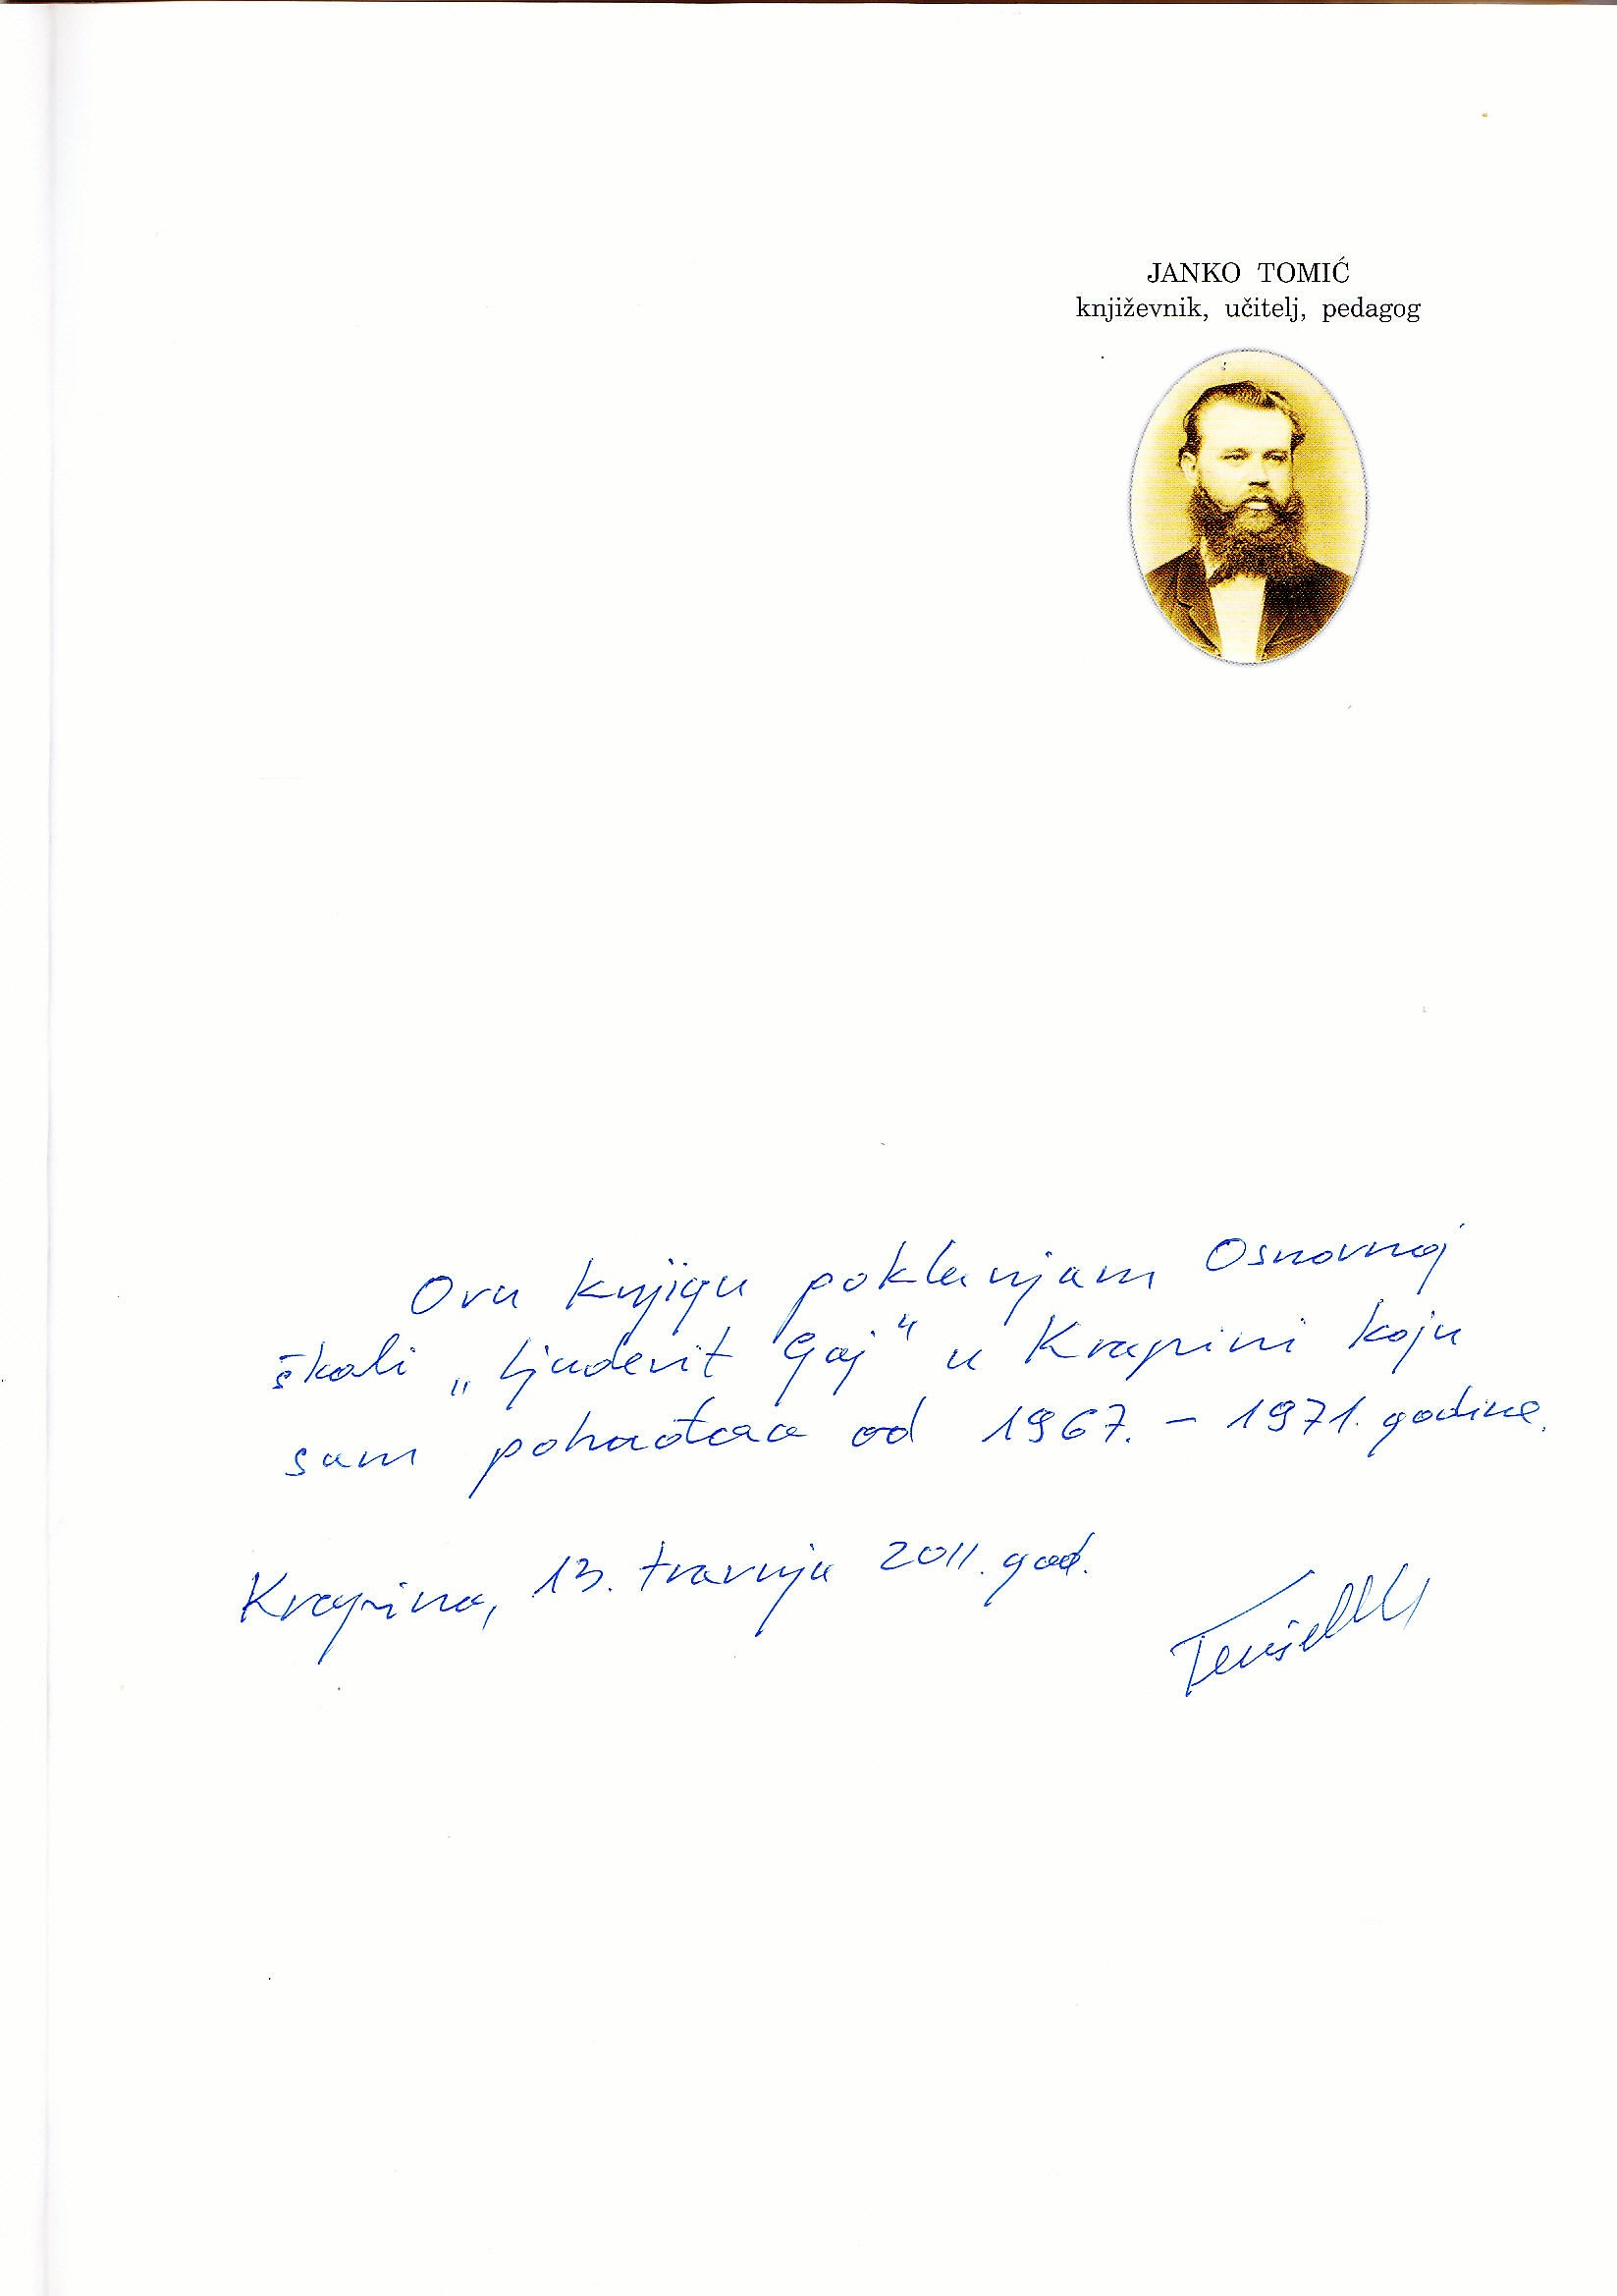 JANKO TOMIĆ
književnik, učitelj, pedagog
Ovu knjigu poklanjam Osnovnoj
školi „Ljudevit Gaj“ u Krapini koju
sam pohađao od 1967. – 1971. godine.
Krapina, 13. travnja 2011. god.